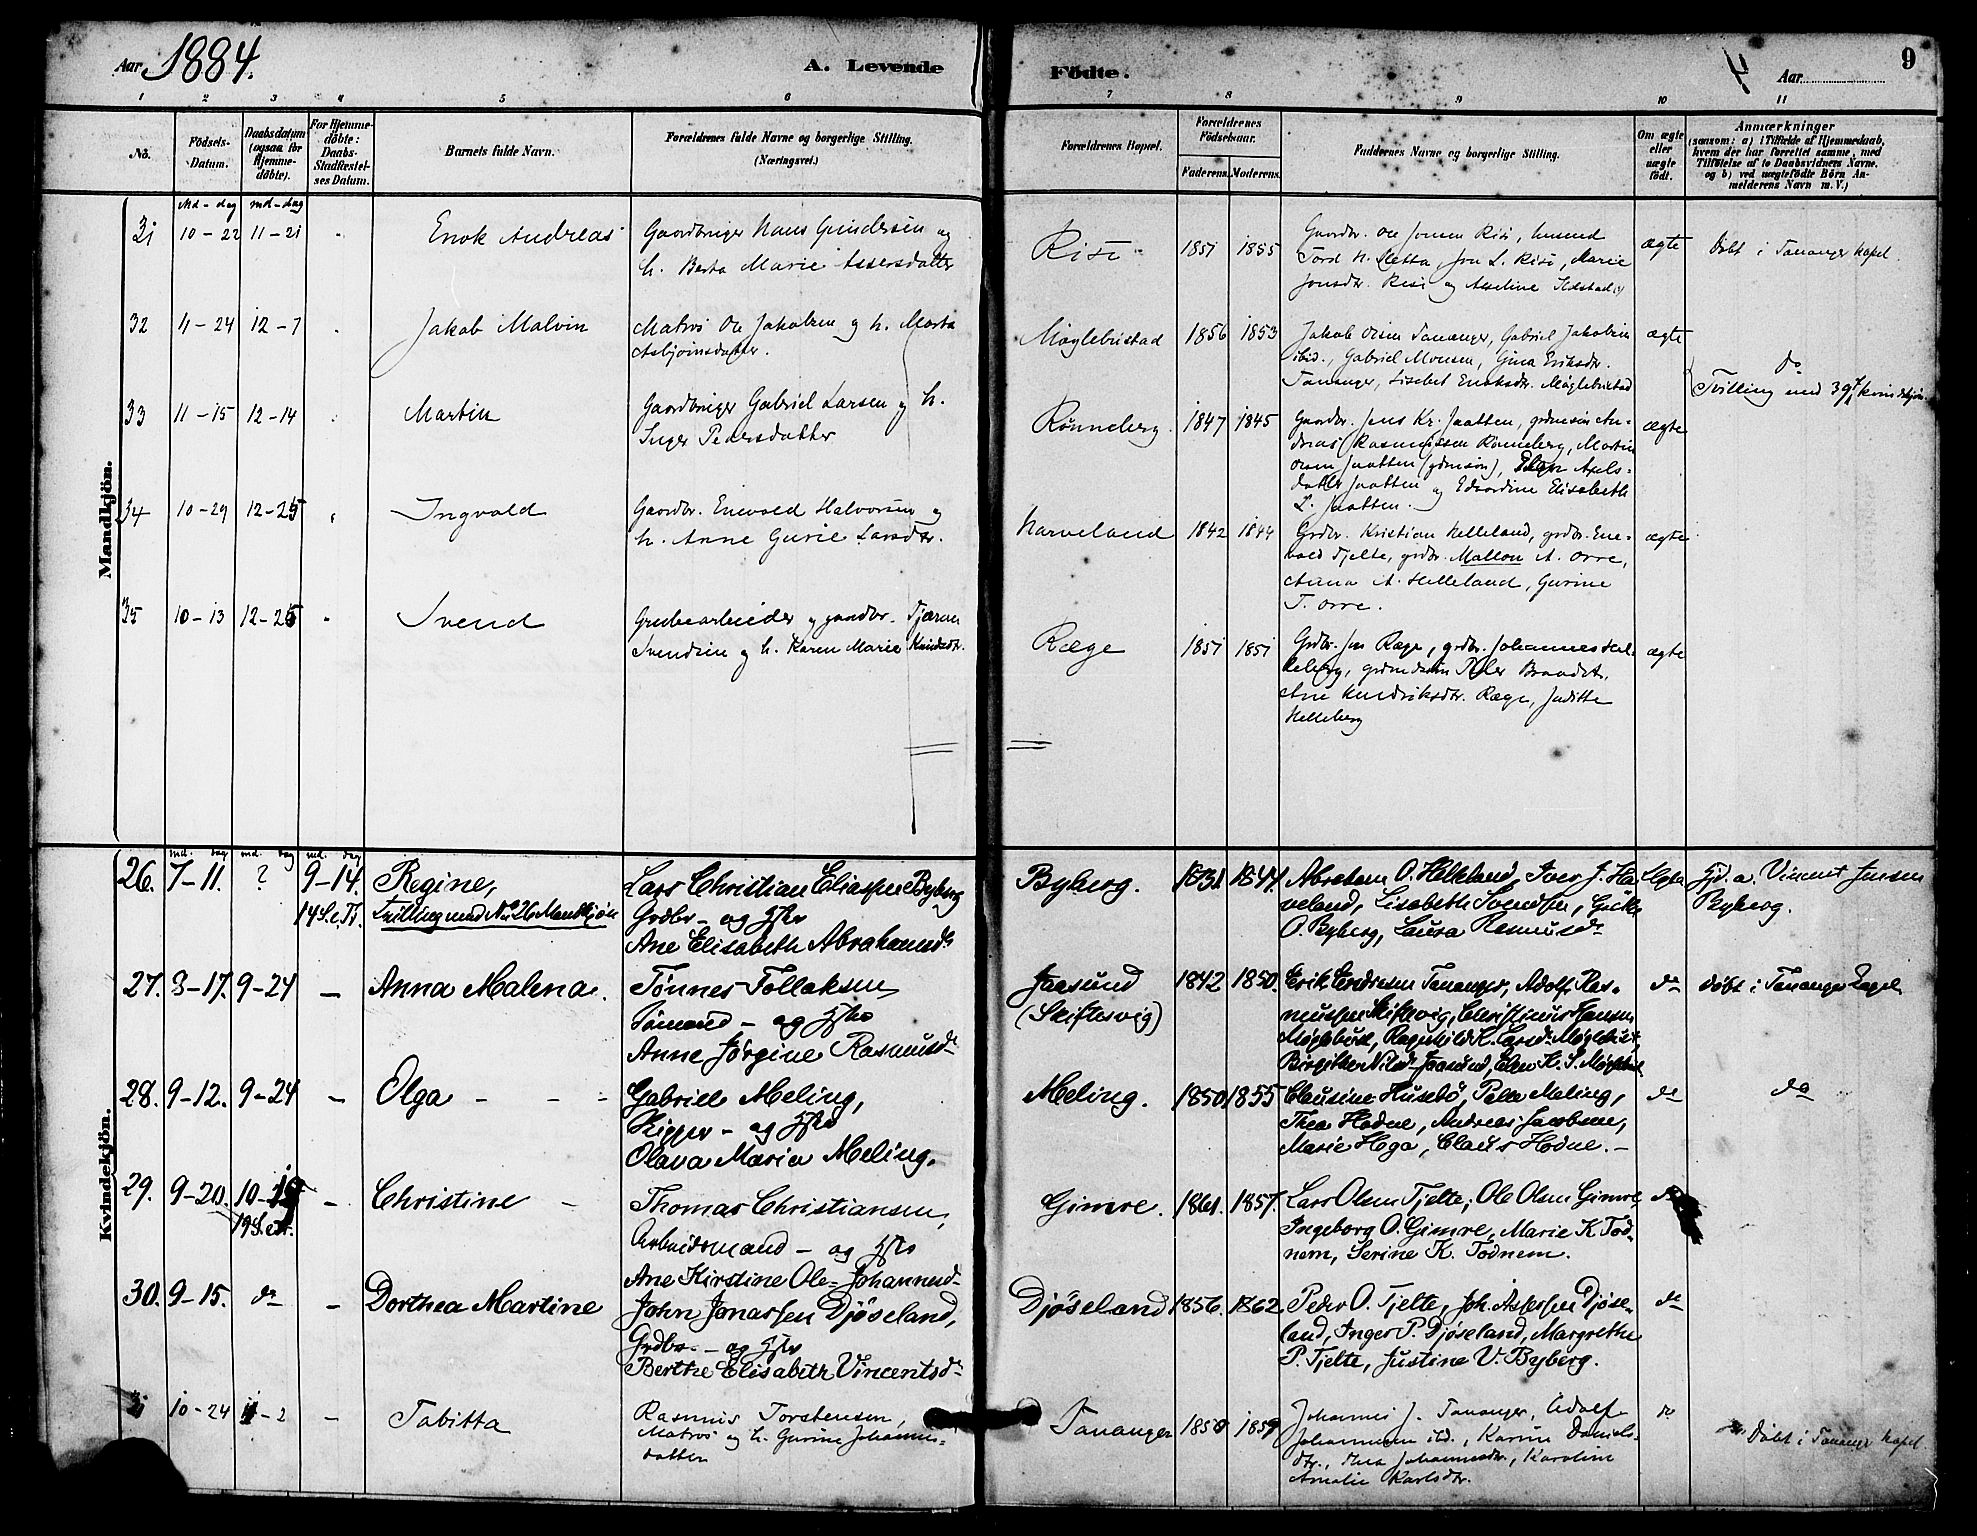 Aar 1884.
A. Levende
Födte.
4 Aar
9
1 2 3 4 5 6 7 8 9 10 11
No.
Födsels-
Datum.
Daabsdatum
(ogsaa for
Hjemme-
döbte).
For Hjemme-
döbte:
Daabs-
Stadfæstel-
ses Datum.
Barnets fulde Navn.
Forældrenes fulde Navne og borgerlige Stilling.
(Næringsvei.)
Forældrenes Bopæl.
Forældrenes
Födselsaar.
Faderens. Moderens.
Faddernes Navne og borgerlige Stilling.
Om ægte
eller
uægte
födt.
Anmærkninger
(saasom: a) i Tilfælde af Hjemmedaab,
hvem der har forrettet samme, med
Tilföielse af to Daabsvidners Navne,
og b) ved uægtefödte Börn An-
melderens Navn m. V.)
Mandkjön.
Md - dag md - dag
31 10-22 11-21 Enok Andreas
Gaardbruger Hans Gundersen og
h. Berta Marie Assersdatter
Risø 1851 1855
Gaardbr. Ole Jonsen Risø, husmd
Tord H. Sletta, Jon L. Risø, Marie
Jonsdtr. Risø og Aseline
ægte
Døbt i Tananger kapel.
32 11-24 12-7 Jakob Malvin
Matros Ole Jakobsen og h. Marta
Asbjørnsdatter.
Møglebustad 1856 1853
Jakob Olsen Tananger, Gabriel Jakobsen
ibid., Gabriel Monsen, Gina Eriksdtr.
Tananger, Lisebet Enoksdtr. Møglebustad
ægte
do
Tvilling med 39 kvindekjøn
33 11-15 12-14 Martin
Gaardbruger Gabriel Larsen og h.
Inger Peersdatter
Rønneberg. 1847 1845
Gaardbr. Jens Kr. Jaatten, grdmsøn An-
dreas Rasmussen Rønneberg, Martin
Olsen Jaatten (grdmsøn), Axels-
datter Jaatten og Edvardine Elisabeth
L. Jaatten.
ægte
34 10-29 12-25 Ingvald
Gaardbr. Enevald Halvorsen og
h. Anne Gurie Larsdtr.
Harveland 1842 1844
Grdbr. Kristian Helleland, grdbr. Ene-
vald Tjelte, grdbr. Mallon A. Orre,
Anna A. Helleland, Gurine
T. Orre.
ægte
35 10-13 12-26 Svend
Grubearbeider og gaardbr. Tjæran
Svendsen og h. Karen Marie Knudsdtr.
Ræge 1851 1851
Grdbr. Jon Ræge, grdbr. Johannes Hel-
leberg, grdmdsøn Peder Brandt,
Ane Hendriksdtr. Ræge, Juditte
Helleberg
ægte
Kvindekjön.
md. dag md. dag md. dag
26. 7-11. ? 9-14. Regine,
14 S. e. Tr. Tvilling med No 26 Mandkjøn
Lars Christian Eliassen Byberg
Grdbr - og Hstr
Ane Elisabeth Abrahamsdr
Byberg. 1831 1844
Abraham O. Helleland, Iver J. Ha-
veland, Lisabeth Svendsen,
O. Byberg, Laura Rasmusdr
Ægte
Gjd. a. Vincent Jensen
Byberg.
27. 8-17. 9-24 - Anna Malena.
Tønnes Tollaksen
Sømand - og Hstr
Anne Jørgine Rasmusdr
Jaasund
(Skiftesvig)
1842 1850.
Erik Endresen Tananger, Adolf Ras-
mussen Skiftesvig, Christinus Hansen
Møglebust, Ragnhild K. Larsdr Møglebust,
Birgithe Nilsdr Jaasund, Elen K. S. Møglebust
do
døbt i Tananger Kapel
28. 9-12. 9-24 - Olga - - -
Gabriel Meling,
Skipper - og Hstr
Olava Maria Meling.
Meling. 1850 1855
Clausine Husebø, Pelle Meling,
Thea Hodne, Andreas Jacobsen,
Marie Haga, Claus Hodne. -
do
do
29. 9-20. 10-19 - Christine -
19 S. e. tr.
Thomas Christiansen,
Arbeidsmand - og Hstr
Ane Kirstine Ole-Johannesd-
Gimre. 1861. 1857.
Lars Olsen Tjelte, Ole Olsen Gimre,
Ingeborg O. Gimre, Marie K Tod-
nem, Serine K. Todnem.
do
30. 9-15. do - Dorthea Martine
John Jonassen Djøseland,
Grdbr. - og Hstr
Berthe Elisabeth Vincentsdr
Djøseland 1856. 1862
Peder O. Tjelte, Joh. Assersen Djøse-
land, Inger P. Djøseland, Margrethe
P. Tjelte, Justine V. Byberg.
do
31 10-24 11-2 - Tabitta
Rasmus Torstensen,
Matros og h. Gurine Johannes-
datter
Tananger 1858 1859
Johannes J. Tananger, Adolf
Johannesen ibd., Karine Daniels-
dtr., Thea Johannesdtr., Karoline
Amalie Karlsdtr.
do
Døbt i Tananger kapel